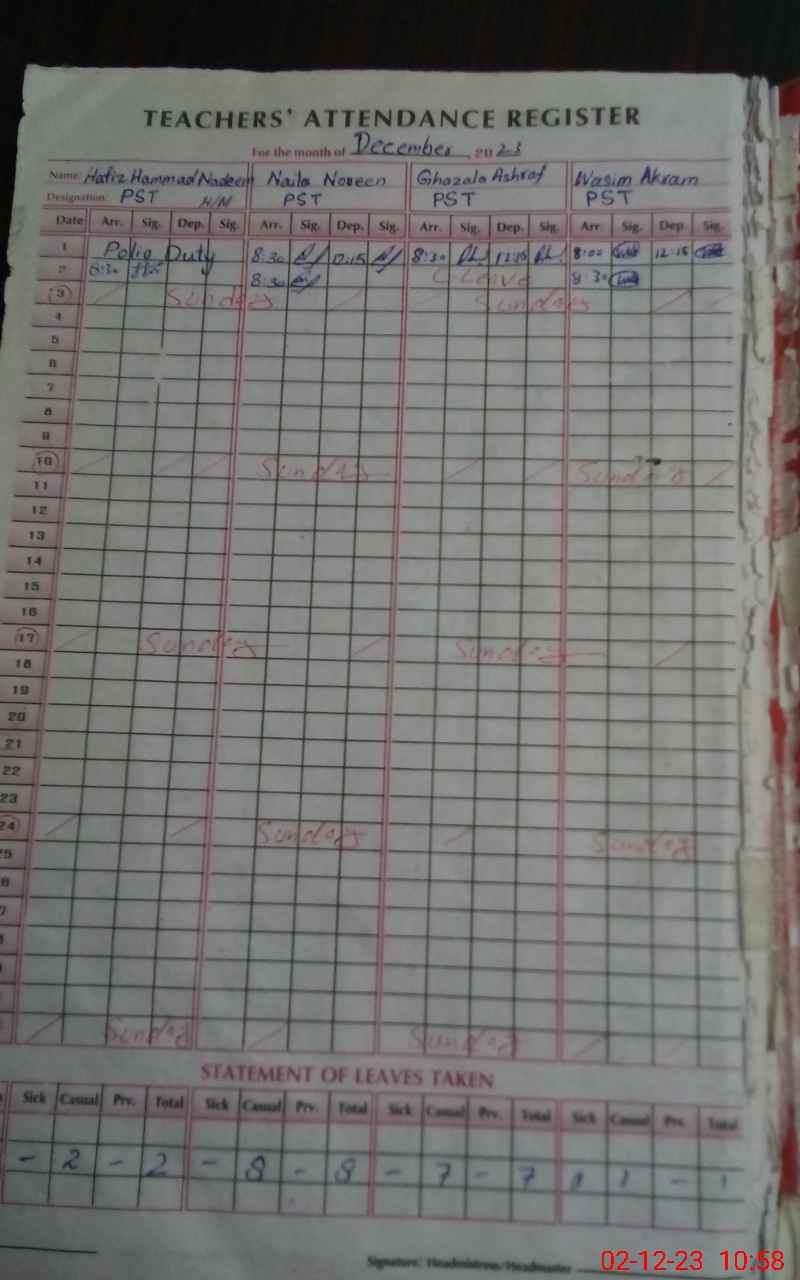 TEACHERS' ATTENDANCE REGISTER
For the month of December, 2023
Name: Hafiz Hammad Nadeem Naila Noreen Ghazala Ashraf Wasim Akram
Designation: PST H/M PST PST PST
Date Arr. Sig. Dep. Sig. Arr. Sig. Dep. Sig. Arr. Sig. Dep. Sig. Arr. Sig. Dep. Sig.
1 Polio Duty 8:30 12:15 8:30 12:15 8:00 12:15
2 8:30 8:30 C-Leave 8:30
3 Sunday Sunday
4
5
6
7
8
9
10 Sunday Sunday
11
12
13
14
15
16
17 Sunday Sunday
18
19
20
21
22
23
24 Sunday Sunday
25
6
7
8
Sunday Sunday
STATEMENT OF LEAVES TAKEN
Sick Casual Prv. Total Sick Casual Prv. Total Sick Casual Prv. Total Sick Casual Prv. Total
- 2 - 2 - 8 - 8 - 7 - 7 1 - 1
Signature: Headmistress/Headmaster
02-12-23 10:58